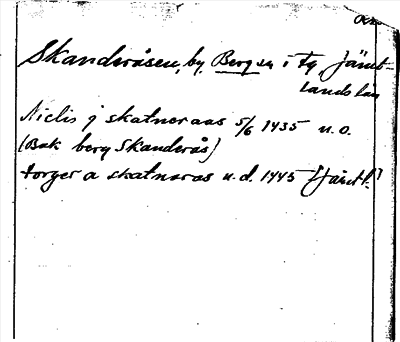 Skanderåsen, by, Berg sn i fg, Jämt-
lands län
Niclis j skatneraas 5/6 1435 n.o.
(Bak berg Skanderås)
torger a skatnaras u.d. 1445 (Jämtl.)